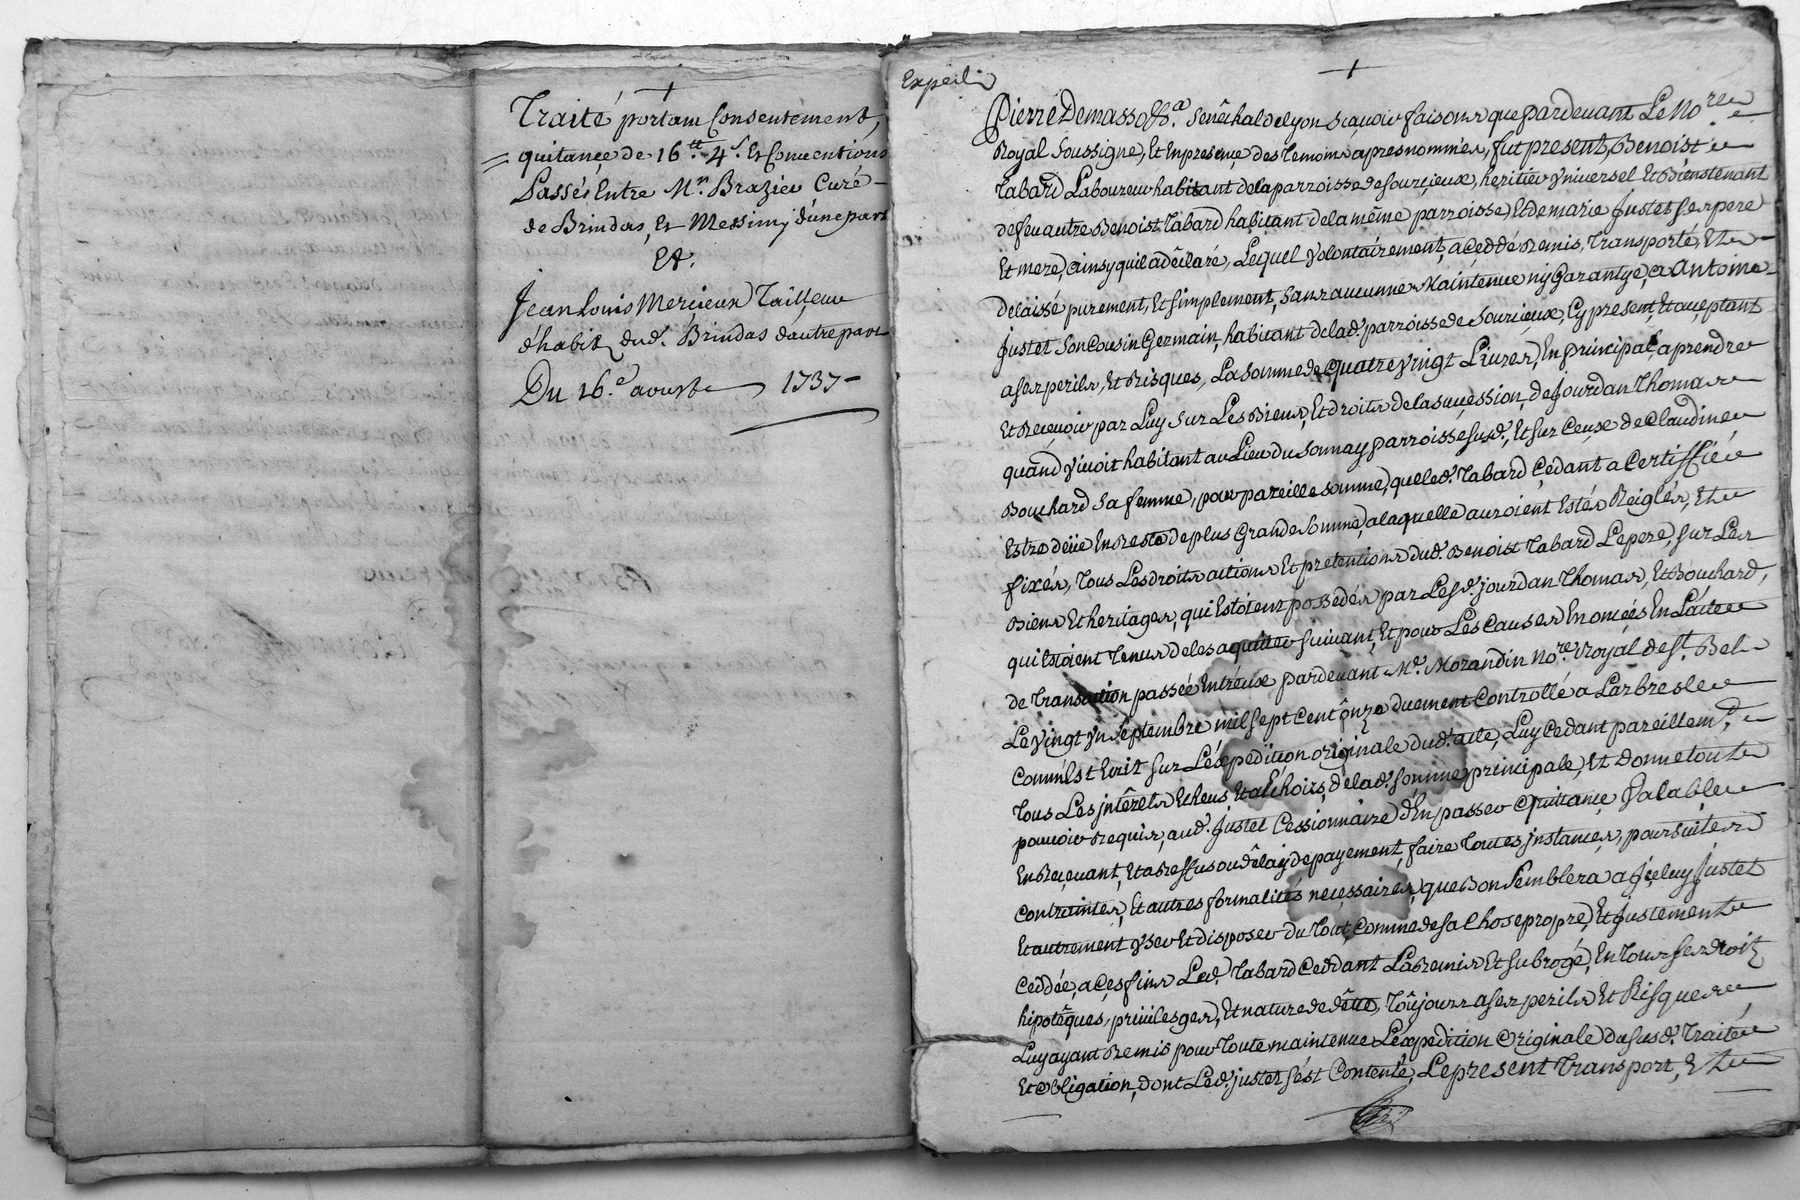 Traité portant Consentement,
quitance de 16 ₶ 4 s. Et Conventions
Passés Entre Mr. Brazier Curé
de Brindas, Et Messimy d'une part
Et.
Jean Louis Mercieux Tailleur
d'habit dud. Brindas d'autre part
Du 16.e aoust 1737
Expedié
Pierre Demasso &a. Senêchal de Lyon sçavoir faisons que pardevant Le No.re
Royal Soussigne, Et En presence des temoins apres nommés, fut present, Benoist
Tabard Laboureur habitant de la parroisse de Sourcieux, heritier Vniversel Et Bienstenant
de feu autre Benoist Tabard habitant de la même parroisse, Et de marie Justet ses pere
Et mere, ainsy quil a dêclaré, Lequel Volontairement, a Ceddé Remis, Transporté, Et
delaissé purement, Et simplement, sans aucunne Maintenue ny Garantye, a Antoine
Justet son Cousin Germain, habitant de lad. parroisse de Sourcieux, Cy present, Et aceptant
a ses perils, Et Risques, La somme de quatre Vingt Livres, En principal, a prendre
Et Recevoir par Luy sur Les Biens, Et droits de la sucession, de Jourdan Thomas
quand Vivoit habitant au Lieu du Sonnay parroisse susd., Et sur Ceux de Claudine
Bouchard Sa femme, pour pareille somme, que led. Tabard Cedant a Certiffié
Estre deüe En Reste de plus Grande Somme, a laquelle auroient Estés Reiglés, Et
fixés, Tous Les droits actions Et pretentions dud. Benoist Tabard Le pere, sur Les
Biens Et heritages, qui Estoient possedés par Lesd. Jourdan Thomas, Et Bouchard,
qui Estoient Tenus de les aquitter suivant, Et pour Les Causes Enoncées En L'acte
de Transaction passée Entreux pardevant Me. Morandin No.re Royal de St. Bel
Le Vingt Vn Septembre mil sept Cent ônze duement Controllé a Larbresle
Comm'il st Ecrit sur L'éxpedition originale dud. acte, Luy Cedant pareillem.t
Tous Les jntêrets Echeus, Et al Echoirs, de lad. somme principale, Et donne toute
pouvoir Requis, aud. Justet Cessionnaire d'En passer Quittance Valable
En Reçevant, Et a Reffus ou dêlay de payement, faire Toutes jnstances, poursuites
Contraintes, Et autres formalités neçessaires, que Bon Semblera a Jceluy Justet
Et autrement Vser Et disposer du Tout, Comme de sa Chose propre, Et Justement
Ceddée, a Ces fins Led. Tabard Ceddant La Remis Et subrogé, En Tous ses droit
hipotêques, privileges, Et nature de dête, Toûjours a ses perils Et Risques
Luy ayant Remis pour Toute maintenue L'éxpedition Originale du susd. Traité
Et Obligation, dont Led. justet s'ést Contenté, Le present Transport, Et